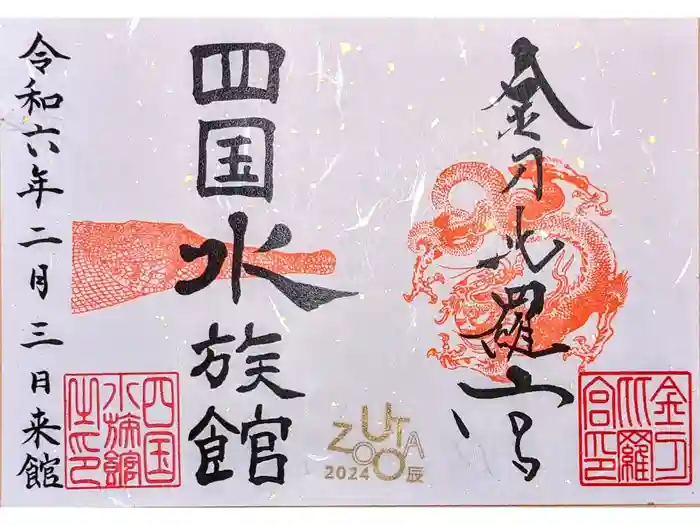 金刀比羅宮
金刀比羅宮印
UTAZOO
2024辰
四国水族館
四国水族館之印
令和六年二月三日来館